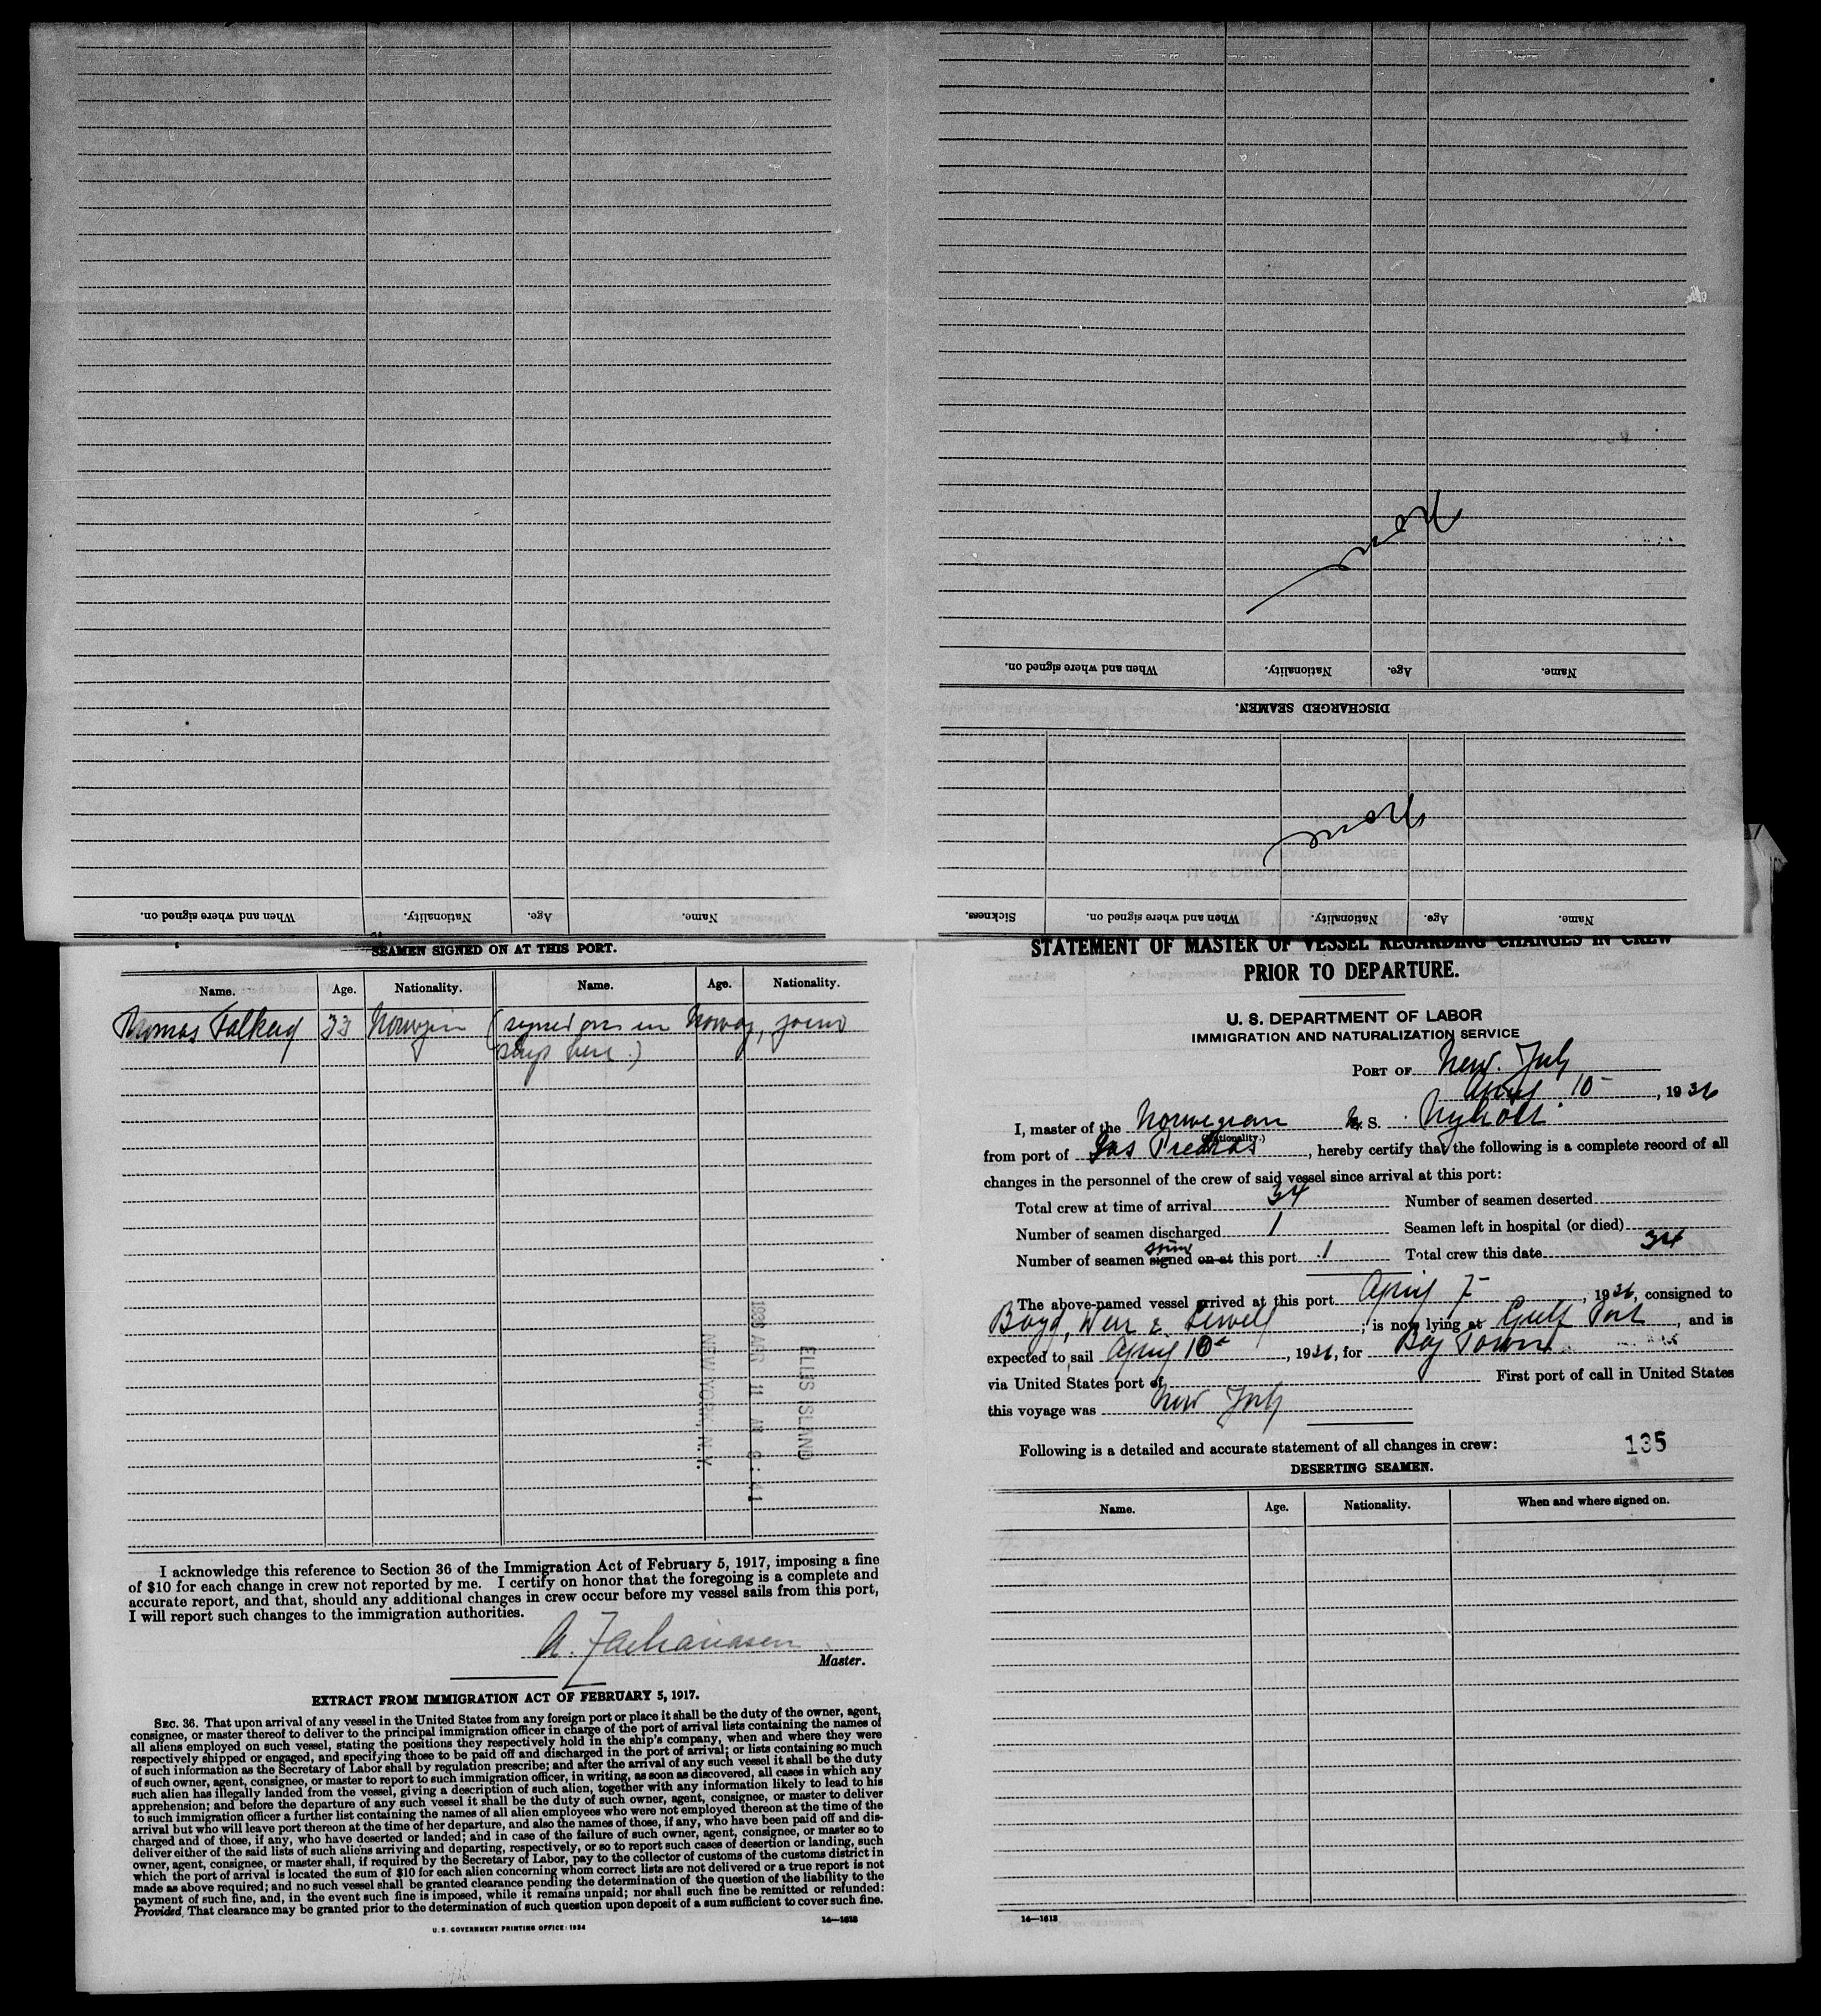 When and where signed on.
Nationality.
Age.
Name.
None
When and where signed on.
Nationality.
Age.
Name.
DISCHARGED SEAMEN.
None
Sickness.
When and where signed on.
Nationality.
Age.
Name.
SEAMEN SIGNED ON AT THIS PORT.
Name. Age. Nationality. Name. Age. Nationality.
Thomas 33 (signed on in Norway, joins
ship here.)
ELLIS ISLAND
NEW YORK, N.Y.
I acknowledge this reference to Section 36 of the Immigration Act of February 5, 1917, imposing a fine
of $10 for each change in crew not reported by me. I certify on honor that the foregoing is a complete and
accurate report, and that, should any additional changes in crew occur before my vessel sails from this port,
I will report such changes to the immigration authorities.
A. Zachariassen
Master.
EXTRACT FROM IMMIGRATION ACT OF FEBRUARY 5, 1917.
SEC. 36. That upon arrival of any vessel in the United States from any foreign port or place it shall be the duty of the owner, agent,
consignee, or master thereof to deliver to the principal immigration officer in charge of the port of arrival lists containing the names of
all aliens employed on such vessel, stating the positions they respectively hold in the ship's company, when and where they were
respectively shipped or engaged, and specifying those to be paid off and discharged in the port of arrival; or lists containing so much
of such information as the Secretary of Labor shall by regulation prescribe; and after the arrival of any such vessel it shall be the duty
of such owner, agent, consignee, or master to report to such immigration officer, in writing, as soon as discovered, all cases in which any
such alien has illegally landed from the vessel, giving a description of such alien, together with any information likely to lead to his
apprehension; and before the departure of any such vessel it shall be the duty of such owner, agent, consignee, or master to deliver
to such immigration officer a further list containing the names of all alien employees who were not employed thereon at the time of the
arrival but who will leave port thereon at the time of her departure, and also the names of those, if any, who have been paid off and dis-
charged and of those, if any, who have deserted or landed; and in case of the failure of such owner, agent, consignee, or master so to
deliver either of the said lists of such aliens arriving and departing, respectively, or so to report such cases of desertion or landing, such
owner, agent, consignee, or master shall, if required by the Secretary of Labor, pay to the collector of customs of the customs district in
which the port of arrival is located the sum of $10 for each alien concerning whom correct lists are not delivered or a true report is not
made as above required; and no such vessel shall be granted clearance pending the determination of the question of the liability to the
payment of such fine, and, in the event such fine is imposed, while it remains unpaid; nor shall such fine be remitted or refunded:
Provided, That clearance may be granted prior to the determination of such question upon deposit of a sum sufficient to cover such fine.
U. S. GOVERNMENT PRINTING OFFICE: 1934 14—1613
STATEMENT OF MASTER OF VESSEL REGARDING CHANGES IN CREW
PRIOR TO DEPARTURE.
U. S. DEPARTMENT OF LABOR
IMMIGRATION AND NATURALIZATION SERVICE
PORT OF New York
April 10, 1936
I, master of the Norwegian S. Nyholt
(Nationality.)
from port of Las Piedras, hereby certify that the following is a complete record of all
changes in the personnel of the crew of said vessel since arrival at this port:
Total crew at time of arrival 34 Number of seamen deserted
Number of seamen discharged 1 Seamen left in hospital (or died)
Number of seamen signed on at this port 1 Total crew this date 34
The above-named vessel arrived at this port April 7, 1936, consigned to
Boyd, Weir & Sewell; is now lying at Gulf Port, and is
expected to sail April 10, 1936, for Bay Town
via United States port of First port of call in United States
this voyage was New York
Following is a detailed and accurate statement of all changes in crew: 135
DESERTING SEAMEN.
Name. Age. Nationality. When and where signed on.
14—1613